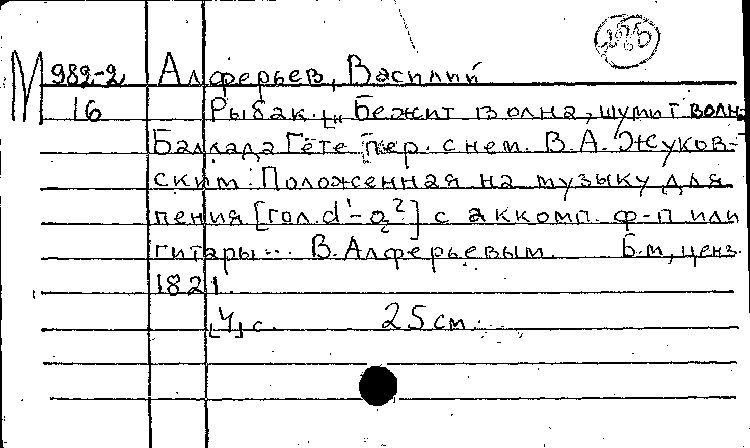 М 982-2 Алферьев, Василий
16 Рыбак. [„Бежит волна, шумит волна
Баллада Гёте пер. с нем. В.А. Жуков-
ским. Положенная на музыку для
пения [гол. d¹-g²] с аккомп. ф-п или
гитары... В. Алферьевым. Б.м, ценз.
1821.
[4] с. 25 см.